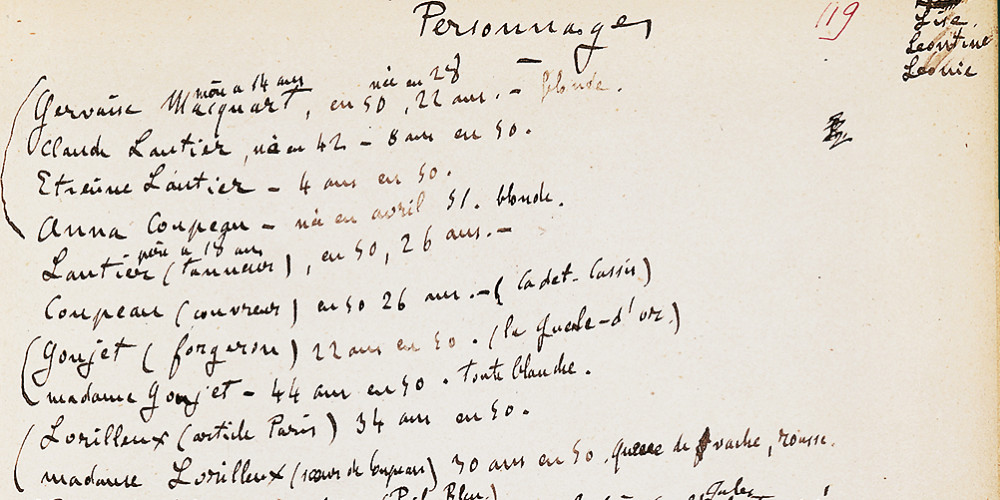 Personnages
119
Lise.
Leontine
Leonie
mère à 14 ans née en 28
Gervaise Macquart, en 50, 22 ans. - blonde.
Claude Lantier, né en 42 - 8 ans en 50.
Etienne Lantier - 4 ans en 50.
Anna Coupeau - née en avril 51. blonde.
père à 18 ans
Lantier (tanneur), en 50, 26 ans. -
Coupeau (couvreur) en 50 26 ans. - (Cadet-Cassis)
Goujet (forgeron) 22 ans en 50. (la Gueule-d'or.)
madame Goujet - 44 ans en 50. toute blanche.
Lorilleux (article Paris) 34 ans en 50.
madame Lorilleux (soeur de Coupeau) 30 ans en 50. queue de vache, rousse.